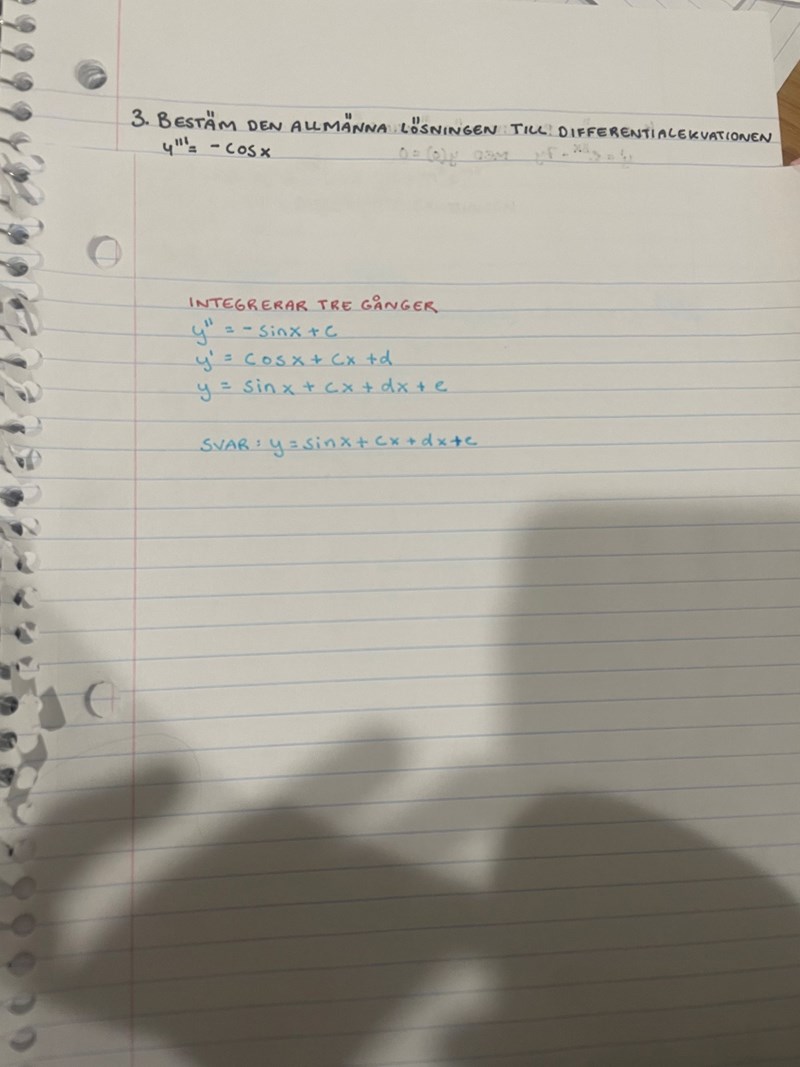 3. BESTÄM DEN ALLMÄNNA LÖSNINGEN TILL DIFFERENTIALEKVATIONEN
y''' = - cosx
INTEGRERAR TRE GÅNGER
y'' = - sinx + c
y' = cosx + cx + d
y = sinx + cx + dx + e
SVAR: y = sinx + cx + dx + e